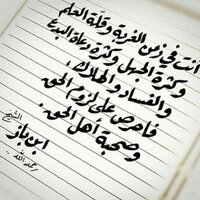 أنت في زمن الغربة وقلة العلم
وكثرة الجهل وكثرة دعاة البدع
والفساد والهلاك،
فاحرص على لزوم الحق
وصحبة أهل الحق.
الشيخ
ابن باز
رحمه الله..